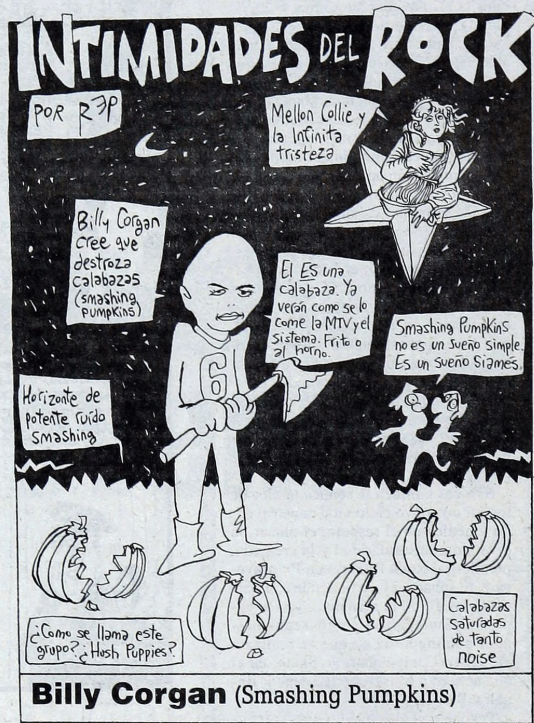 INTIMIDADES DEL ROCK
POR REP
Mellon Collie y
la Infinita
tristeza
Billy Corgan
cree que
destroza
calabazas
(smashing
pumpkins)
El ES una
calabaza. Ya
verán como se lo
come la MTV y el
sistema. Frito o
al horno.
Smashing Pumpkins
no es un sueño simple.
Es un sueño Siamés.
Horizonte de
potente ruido
smashing
6
¿Como se llama este
grupo? ¿Hush Puppies?
Calabazas
saturadas
de tanto
noise
Billy Corgan (Smashing Pumpkins)